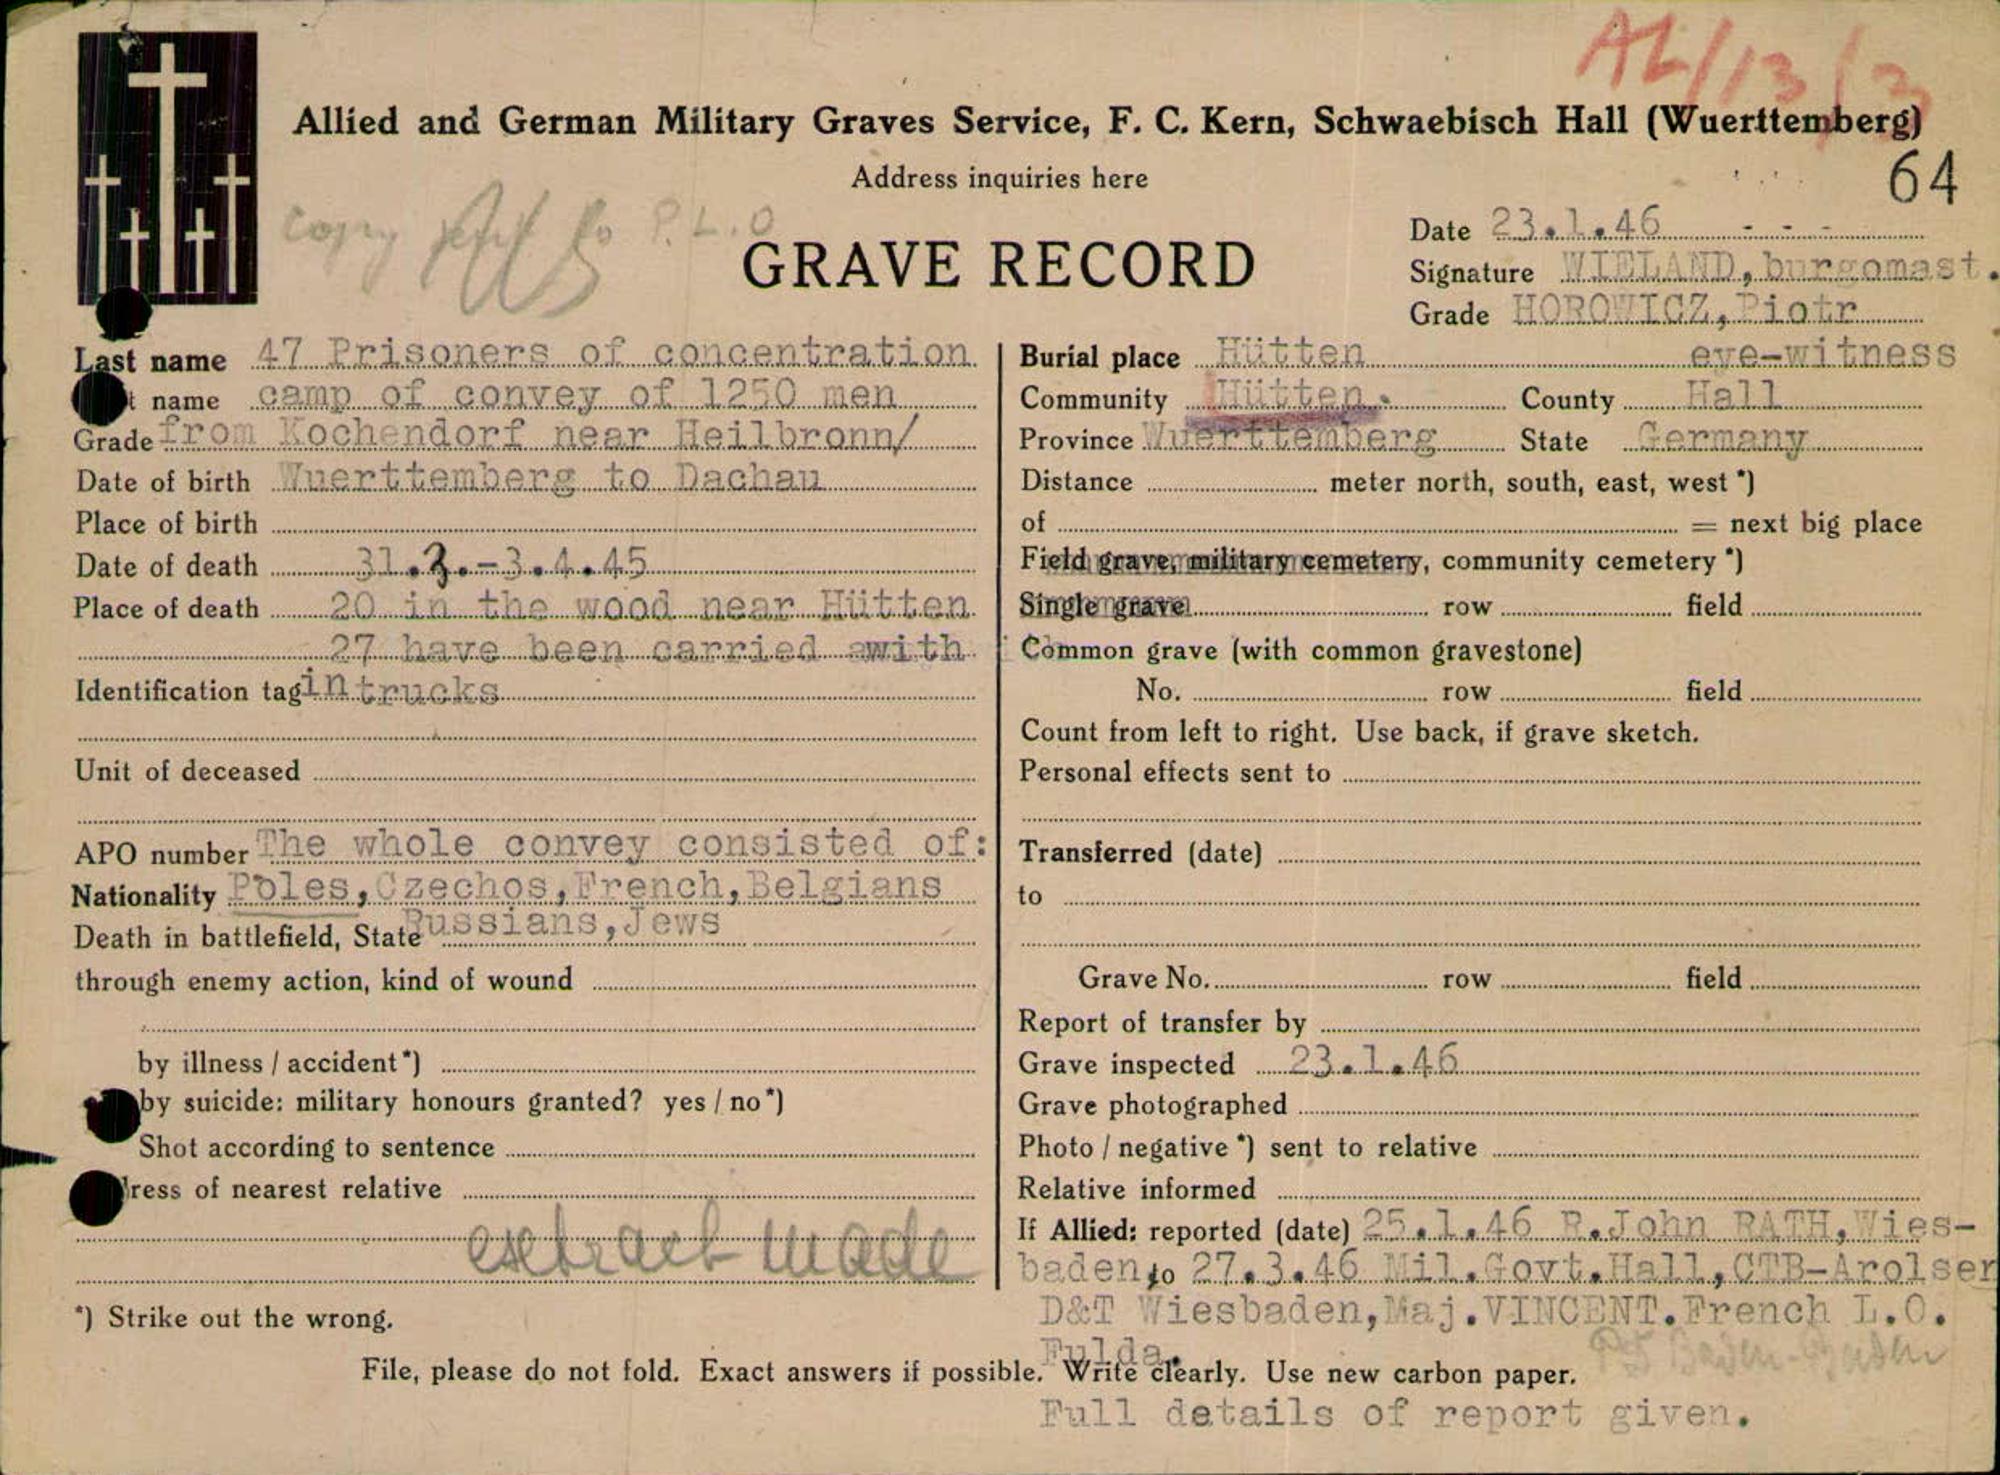 AL/13/3
Allied and German Military Graves Service, F. C. Kern, Schwaebisch Hall (Wuerttemberg)
Address inquiries here
64
copy sent to P.L.O
GRAVE RECORD
Date 23.1.46 - - -
Signature WIELAND, burgomast.
Grade HOROWICZ, Piotr
Last name 47 Prisoners of concentration
t name camp of convey of 1250 men
Grade from Kochendorf near Heilbronn/
Date of birth Wuerttemberg to Dachau
Place of birth
Date of death 31.3.-3.4.45
Place of death 20 in the wood near Hütten
27 have been carried with
Identification tag in trucks
Unit of deceased
APO number The whole convey consisted of:
Nationality Poles, Czechos, French, Belgians
Death in battlefield, State Russians, Jews
through enemy action, kind of wound
by illness / accident*)
by suicide: military honours granted? yes / no*)
Shot according to sentence
ress of nearest relative
extract made
*) Strike out the wrong.
Burial place Hütten eye-witness
Community Hütten. County Hall
Province Wuerttemberg State Germany
Distance meter north, south, east, west *)
of = next big place
Field grave, military cemetery, community cemetery *)
Single grave row field
Common grave (with common gravestone)
No. row field
Count from left to right. Use back, if grave sketch.
Personal effects sent to
Transferred (date)
to
Grave No. row field
Report of transfer by
Grave inspected 23.1.46
Grave photographed
Photo / negative *) sent to relative
Relative informed
If Allied: reported (date) 25.1.46 R.John RATH, Wies-
baden to 27.3.46 Mil.Govt.Hall, CTB-Arolser
D&T Wiesbaden, Maj.VINCENT. French L.O.
Fulda. Baden-Baden
File, please do not fold. Exact answers if possible. Write clearly. Use new carbon paper.
Full details of report given.